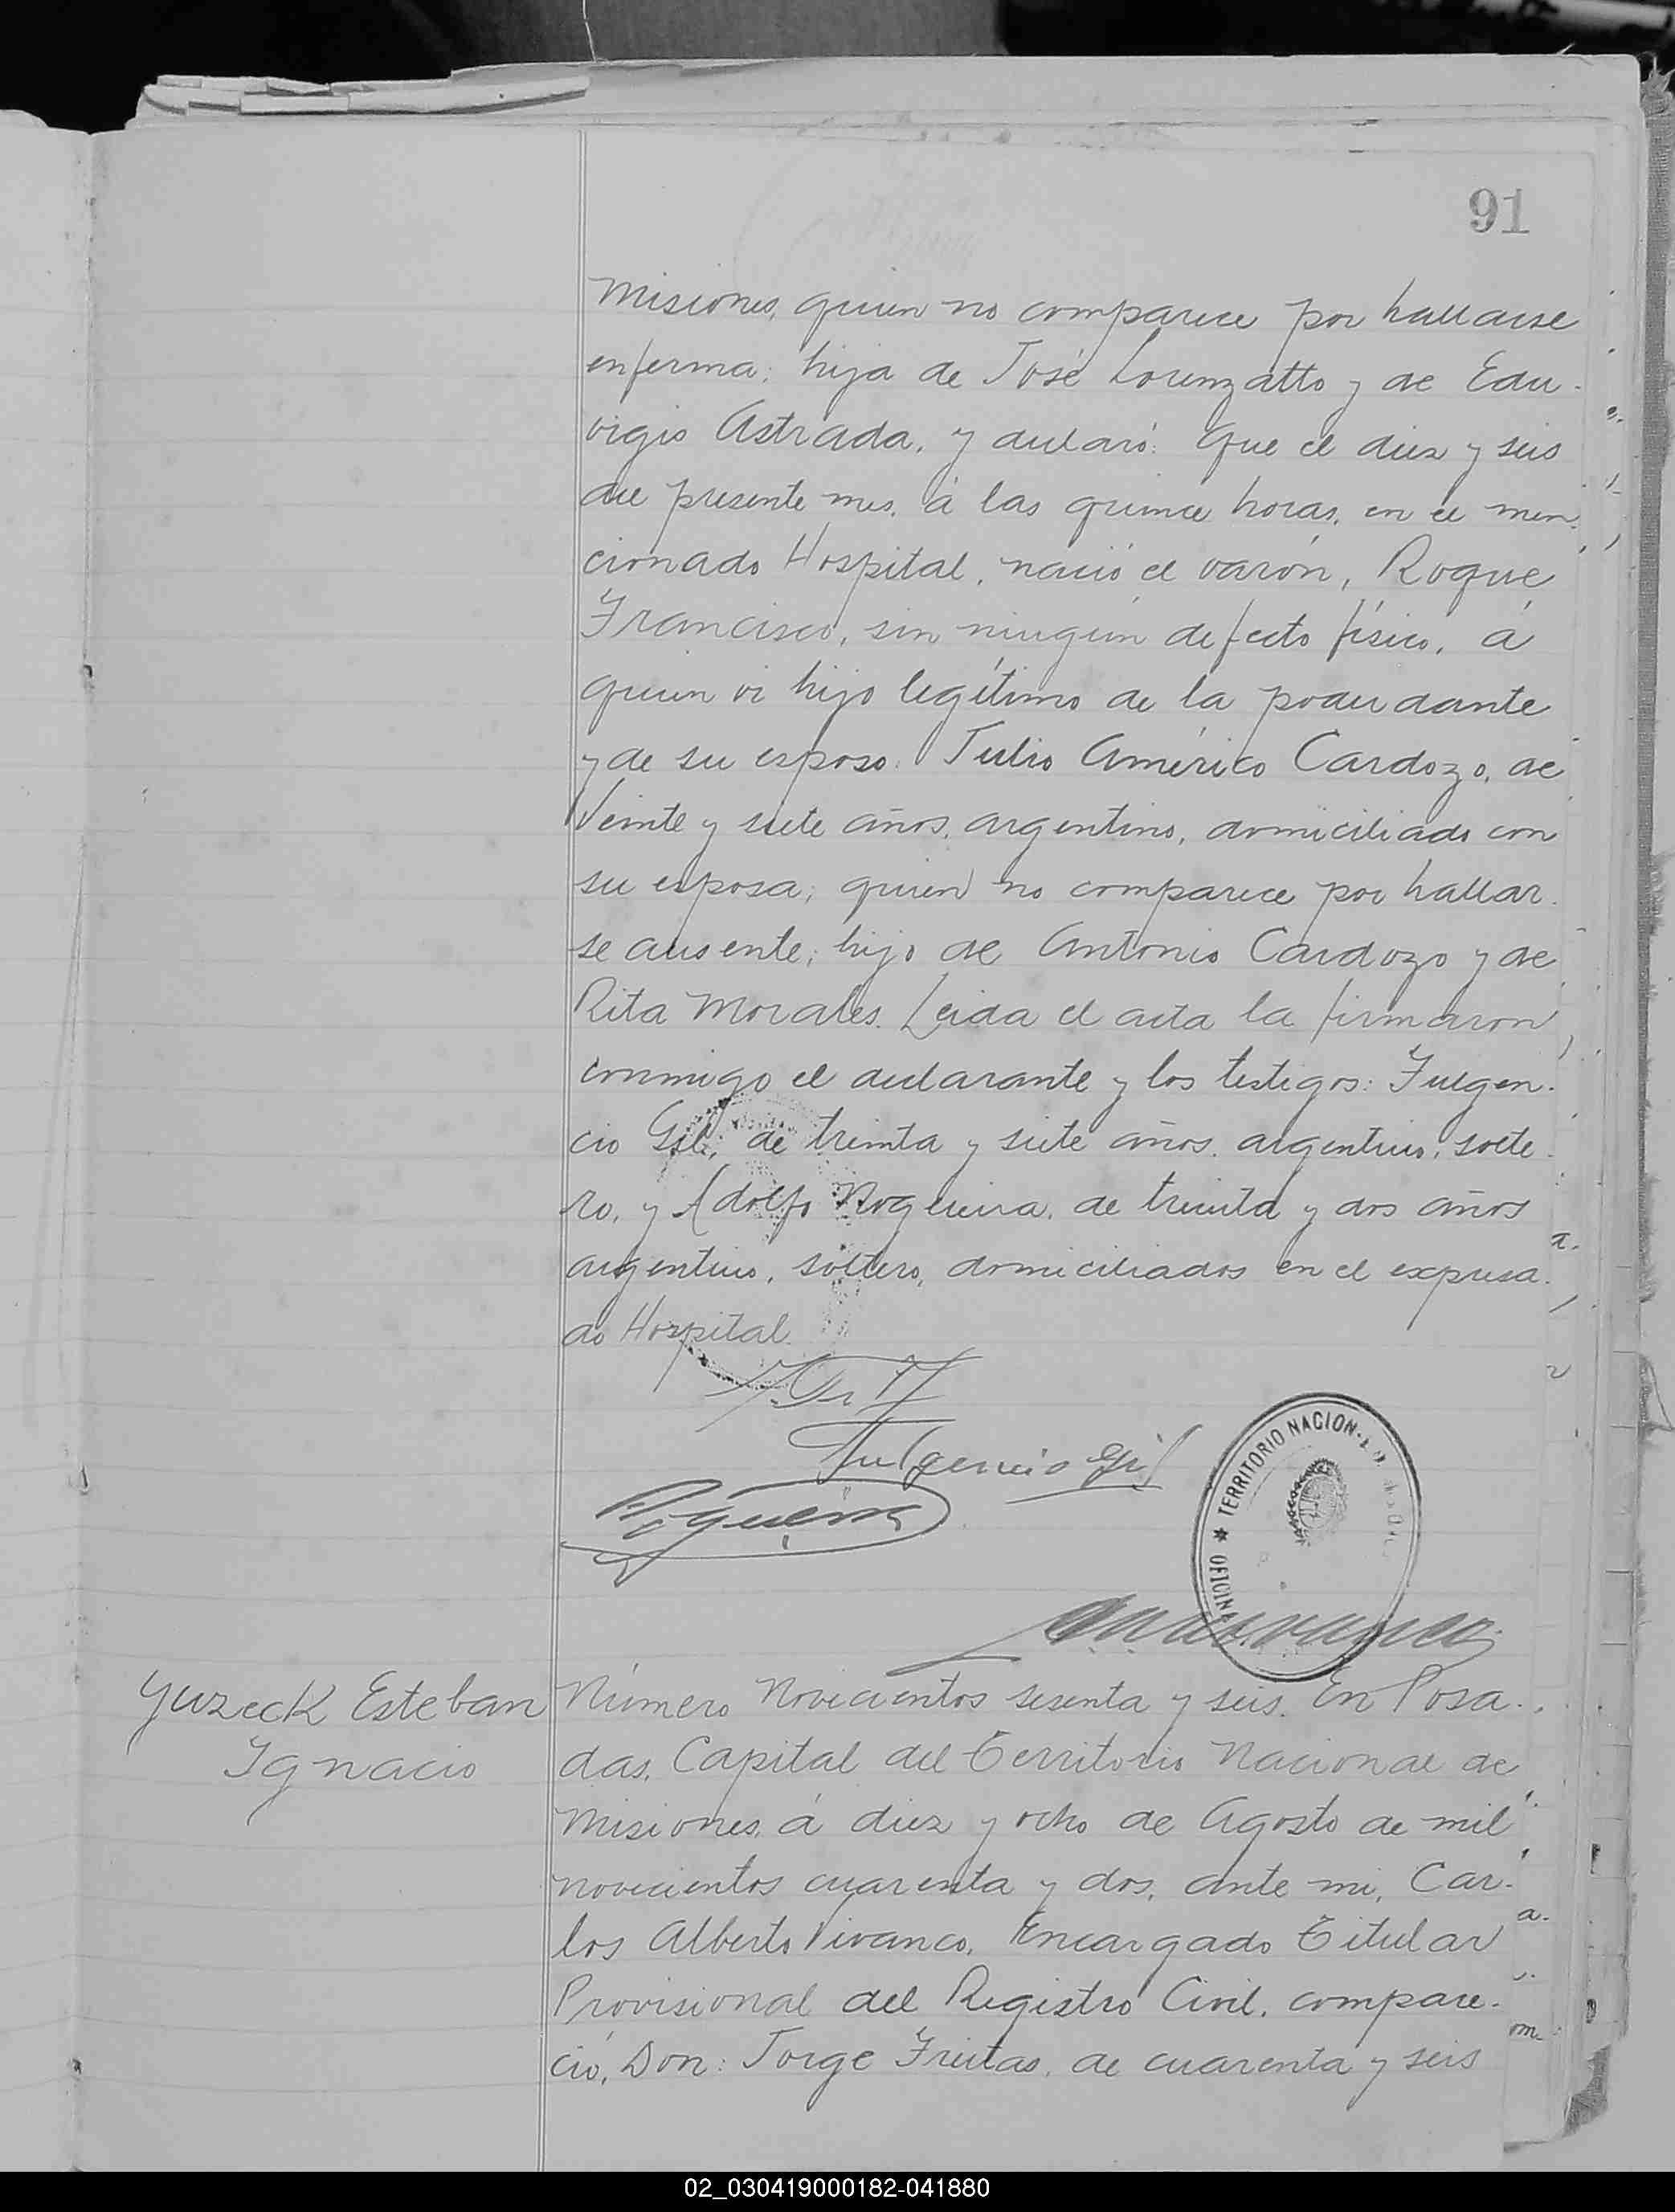 91
Misiones, quien no comparece por hallarse
enferma; hija de José Lorenzatto y de Edu-
vigis Astrada, y declaró: Que el diez y seis
del presente mes, á las quince horas, en el men-
cionado Hospital, nació el varón, Roque
Francisco, sin ningún defecto físico, á
quien vi hijo legítimo de la poderdante
y de su esposo: Julio Américo Cardozo, de
Veinte y siete años, argentino, domiciliado con
su esposa; quien no comparece por hallar-
se ausente; hijo de Antonio Cardozo y de
Rita Morales. Leida el acta la firmaron
conmigo el declarante y los testigos: Fulgen-
cio Gil, de treinta y siete años, argentino, solte-
ro, y Adolfo Nogueira, de treinta y dos años
argentino, soltero, domiciliados en el expresa-
do Hospital.
Fulgencio Gil
TERRITORIO NACION
OFICINA
Yuzeck Esteban
Ignacio
Número Novecientos sesenta y seis. En Posa-
das, Capital del Territorio Nacional de
Misiones, á diez y ocho de Agosto de mil
novecientos cuarenta y dos, ante mi, Car-
los Alberto Vivanco, Encargado Titular
Provisional del Registro Civil, compare-
ció, Don: Jorge Freitas, de cuarenta y seis
02_030419000182-041880